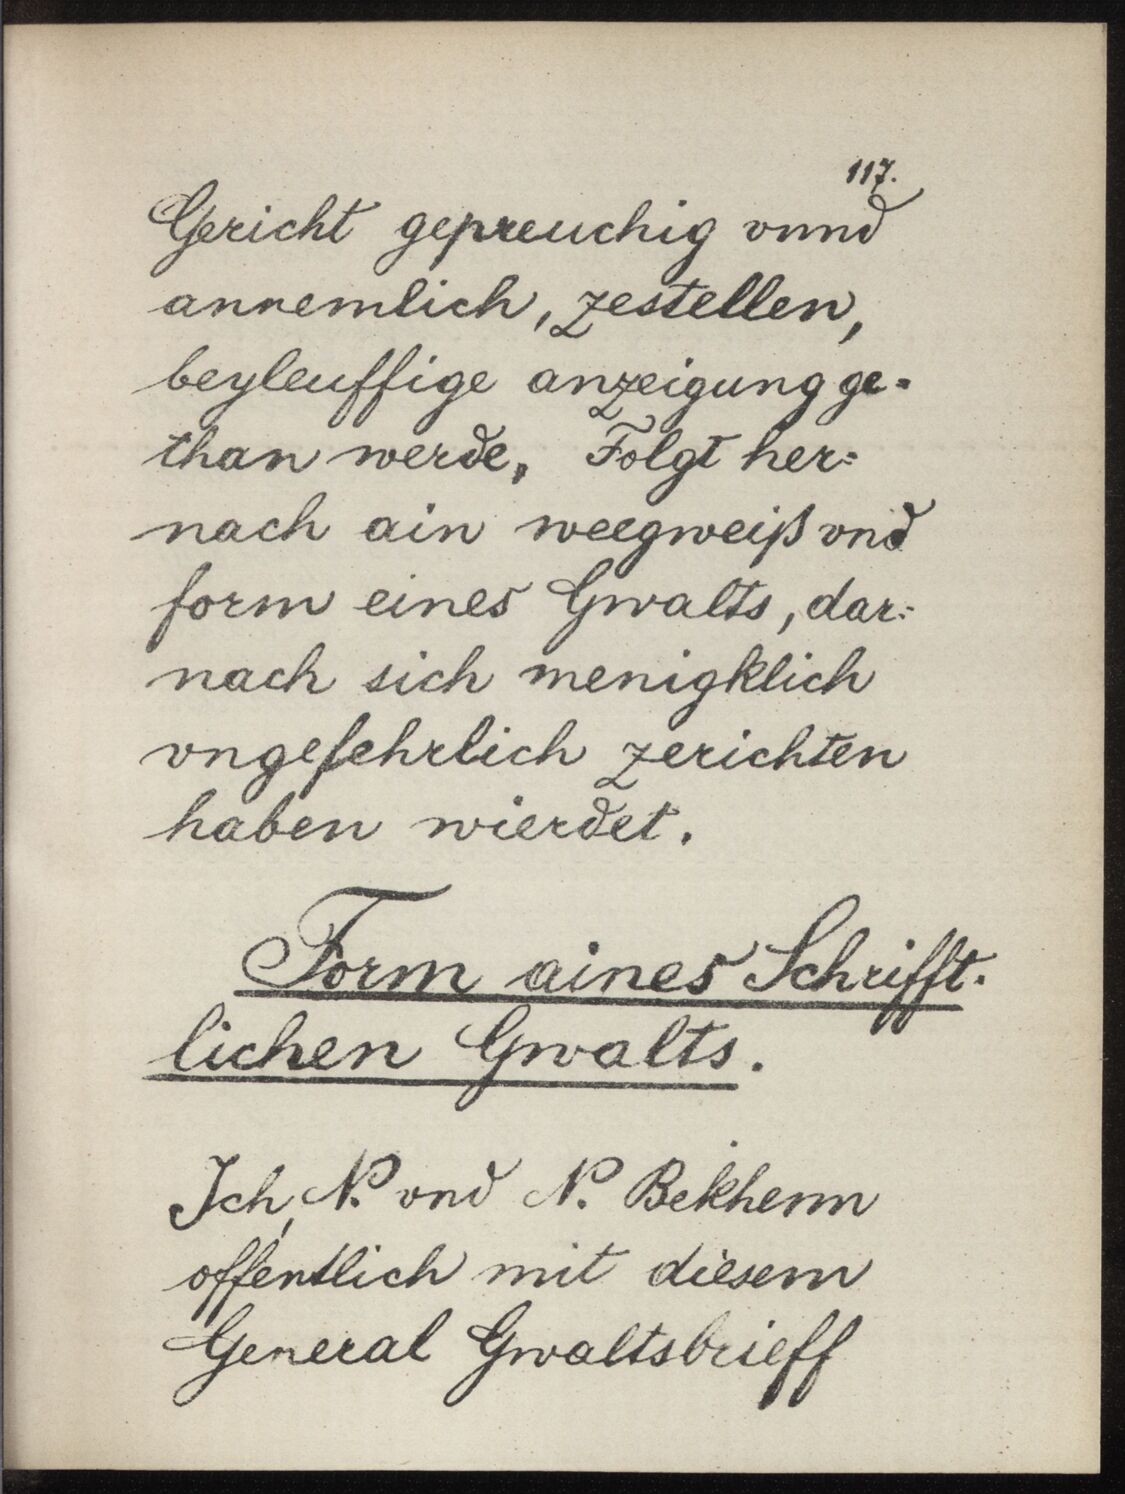 117.
Gericht gepreuchig vnnd
annemlich, zestellen,
beyleuffige anzeigung ge-
than werde, Folgt her=
nach ain weegweiß vnd
form eines Gwalts, dar=
nach sich menigklich
vngefehrlich zerichten
haben wierdet.
Form aines Schrifft-
lichen Gwalts.
Ich, N. vnd N. Bekhenn
offentlich mit diesem
General Gwaltsbrieff